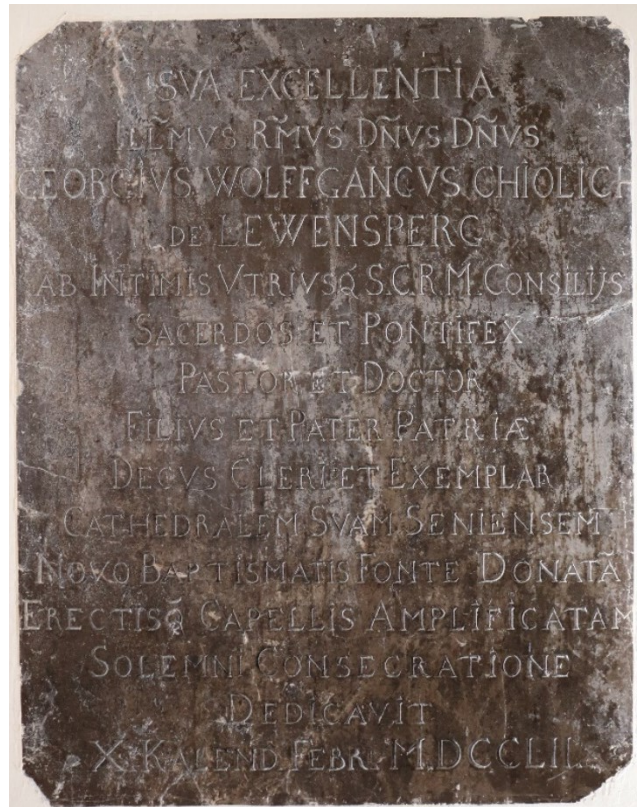 SVA EXCELLENTIA
ILL̃MVS R̃MVS DÑVS DÑVS
GEORGIVS WOLFFGANGVS CHIOLICH
DE LEWENSPERG
AB INTIMIS VTRIVSQ̃ S.C.R.M. CONSILIJS
SACERDOS ET PONTIFEX
PASTOR ET DOCTOR
FILIVS ET PATER PATRIÆ
DECVS CLERI ET EXEMPLAR
CATHEDRALEM SVAM SENIENSEM
NOVO BAPTISMATIS FONTE DONATÃ
ERECTISQ̃ CAPELLIS AMPLIFICATAM
SOLEMNI CONSECRATIONE
DEDICAVIT
X. KALEND FEBR. M.DCCLII.